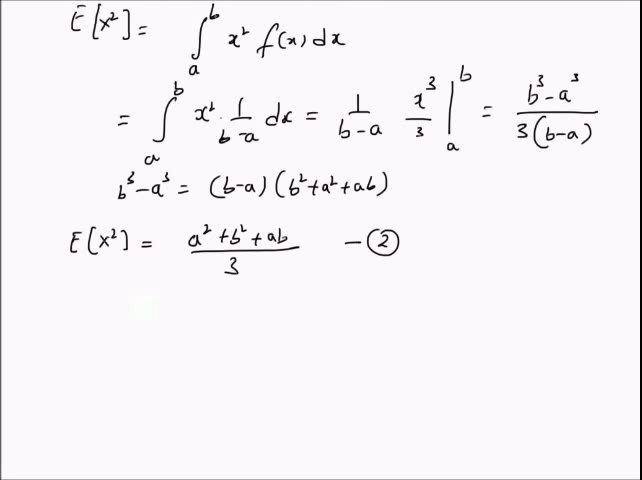 E[x²] = ∫ₐᵇ x² f(x) dx
= ∫ₐᵇ x² · 1/(b-a) dx = 1/(b-a) x³/3 |ₐᵇ = (b³-a³)/(3(b-a))
b³-a³ = (b-a) (b²+a²+ab)
E[x²] = (a²+b²+ab)/3 — ②